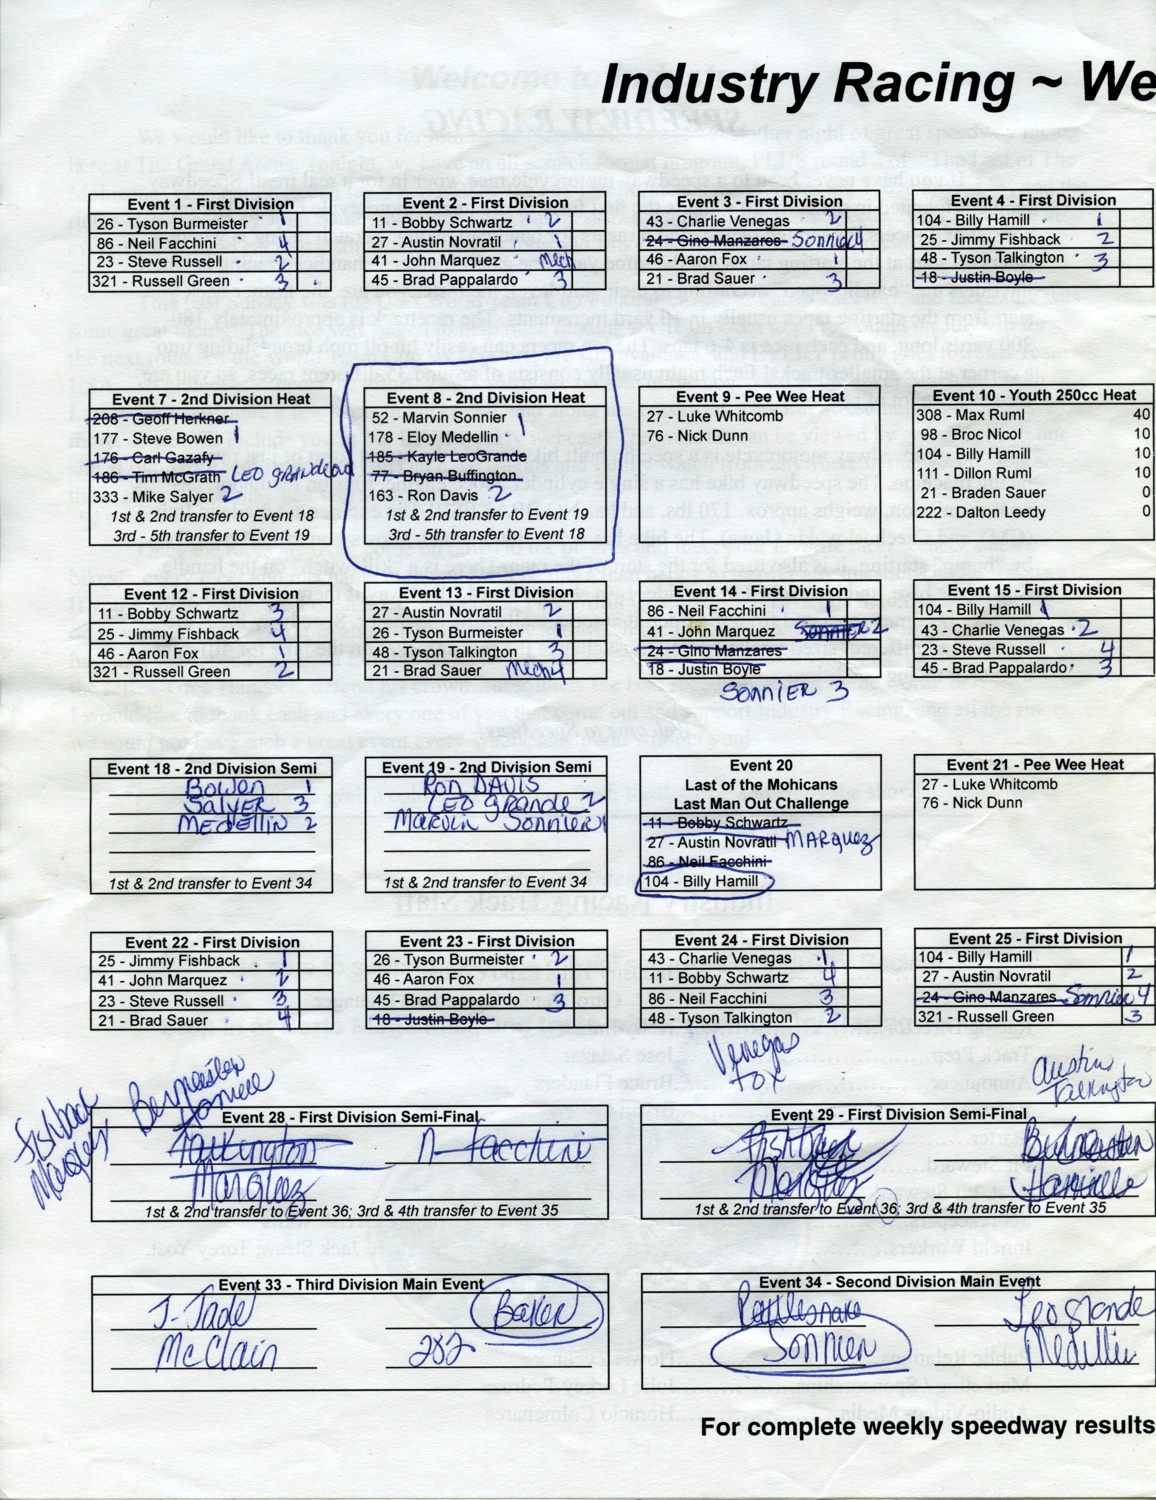 Industry Racing ~ We
Event 1 - First Division
26 - Tyson Burmeister 1
86 - Neil Facchini 4
23 - Steve Russell 2
321 - Russell Green 3
Event 2 - First Division
11 - Bobby Schwartz 2
27 - Austin Novratil 1
41 - John Marquez Mech
45 - Brad Pappalardo 3
Event 3 - First Division
43 - Charlie Venegas 2
24 - Gino Manzares Sonnier 4
46 - Aaron Fox 1
21 - Brad Sauer 3
Event 4 - First Division
104 - Billy Hamill 1
25 - Jimmy Fishback 2
48 - Tyson Talkington 3
18 - Justin Boyle
Event 7 - 2nd Division Heat
208 - Geoff Herkner
177 - Steve Bowen 1
176 - Carl Gazafy
186 - Tim McGrath LEO GRANDE
333 - Mike Salyer 2
1st & 2nd transfer to Event 18
3rd - 5th transfer to Event 19
Event 8 - 2nd Division Heat
52 - Marvin Sonnier 1
178 - Eloy Medellin
185 - Kayle LeoGrande
77 - Bryan Buffington
163 - Ron Davis 2
1st & 2nd transfer to Event 19
3rd - 5th transfer to Event 18
Event 9 - Pee Wee Heat
27 - Luke Whitcomb
76 - Nick Dunn
Event 10 - Youth 250cc Heat
308 - Max Ruml 40
98 - Broc Nicol 10
104 - Billy Hamill 10
111 - Dillon Ruml 10
21 - Braden Sauer 0
222 - Dalton Leedy 0
Event 12 - First Division
11 - Bobby Schwartz 3
25 - Jimmy Fishback 4
46 - Aaron Fox 1
321 - Russell Green 2
Event 13 - First Division
27 - Austin Novratil 2
26 - Tyson Burmeister 1
48 - Tyson Talkington 3
21 - Brad Sauer Mech 4
Event 14 - First Division
86 - Neil Facchini 1
41 - John Marquez SONNIER 2
24 - Gino Manzares
18 - Justin Boyle
SONNIER 3
Event 15 - First Division
104 - Billy Hamill 1
43 - Charlie Venegas 2
23 - Steve Russell 4
45 - Brad Pappalardo 3
Event 18 - 2nd Division Semi
BOWEN 1
SALYER 3
MEDELLIN 2
1st & 2nd transfer to Event 34
Event 19 - 2nd Division Semi
RON DAVIS
LEO GRANDE 2
MARVIN SONNIER 1
1st & 2nd transfer to Event 34
Event 20
Last of the Mohicans
Last Man Out Challenge
11 - Bobby Schwartz
27 - Austin Novratil MARQUEZ
86 - Neil Facchini
104 - Billy Hamill
Event 21 - Pee Wee Heat
27 - Luke Whitcomb
76 - Nick Dunn
Event 22 - First Division
25 - Jimmy Fishback 1
41 - John Marquez 2
23 - Steve Russell 3
21 - Brad Sauer 4
Event 23 - First Division
26 - Tyson Burmeister 2
46 - Aaron Fox 1
45 - Brad Pappalardo 3
18 - Justin Boyle
Event 24 - First Division
43 - Charlie Venegas 1
11 - Bobby Schwartz 4
86 - Neil Facchini 3
48 - Tyson Talkington 2
Event 25 - First Division
104 - Billy Hamill 1
27 - Austin Novratil 2
24 - Gino Manzares Sonnier 4
321 - Russell Green 3
Fishback
Marquez
Burmeister
Venegas
Fox
Austin
Talkington
Event 28 - First Division Semi-Final
Talkington N Facchini
Marquez
1st & 2nd transfer to Event 36; 3rd & 4th transfer to Event 35
Event 29 - First Division Semi-Final
Fishback Burmeister
Marquez
1st & 2nd transfer to Event 36; 3rd & 4th transfer to Event 35
Event 33 - Third Division Main Event
Baker
McClain 282
Event 34 - Second Division Main Event
Rattlesnake Leo Grande
Sonnier Medellin
For complete weekly speedway results